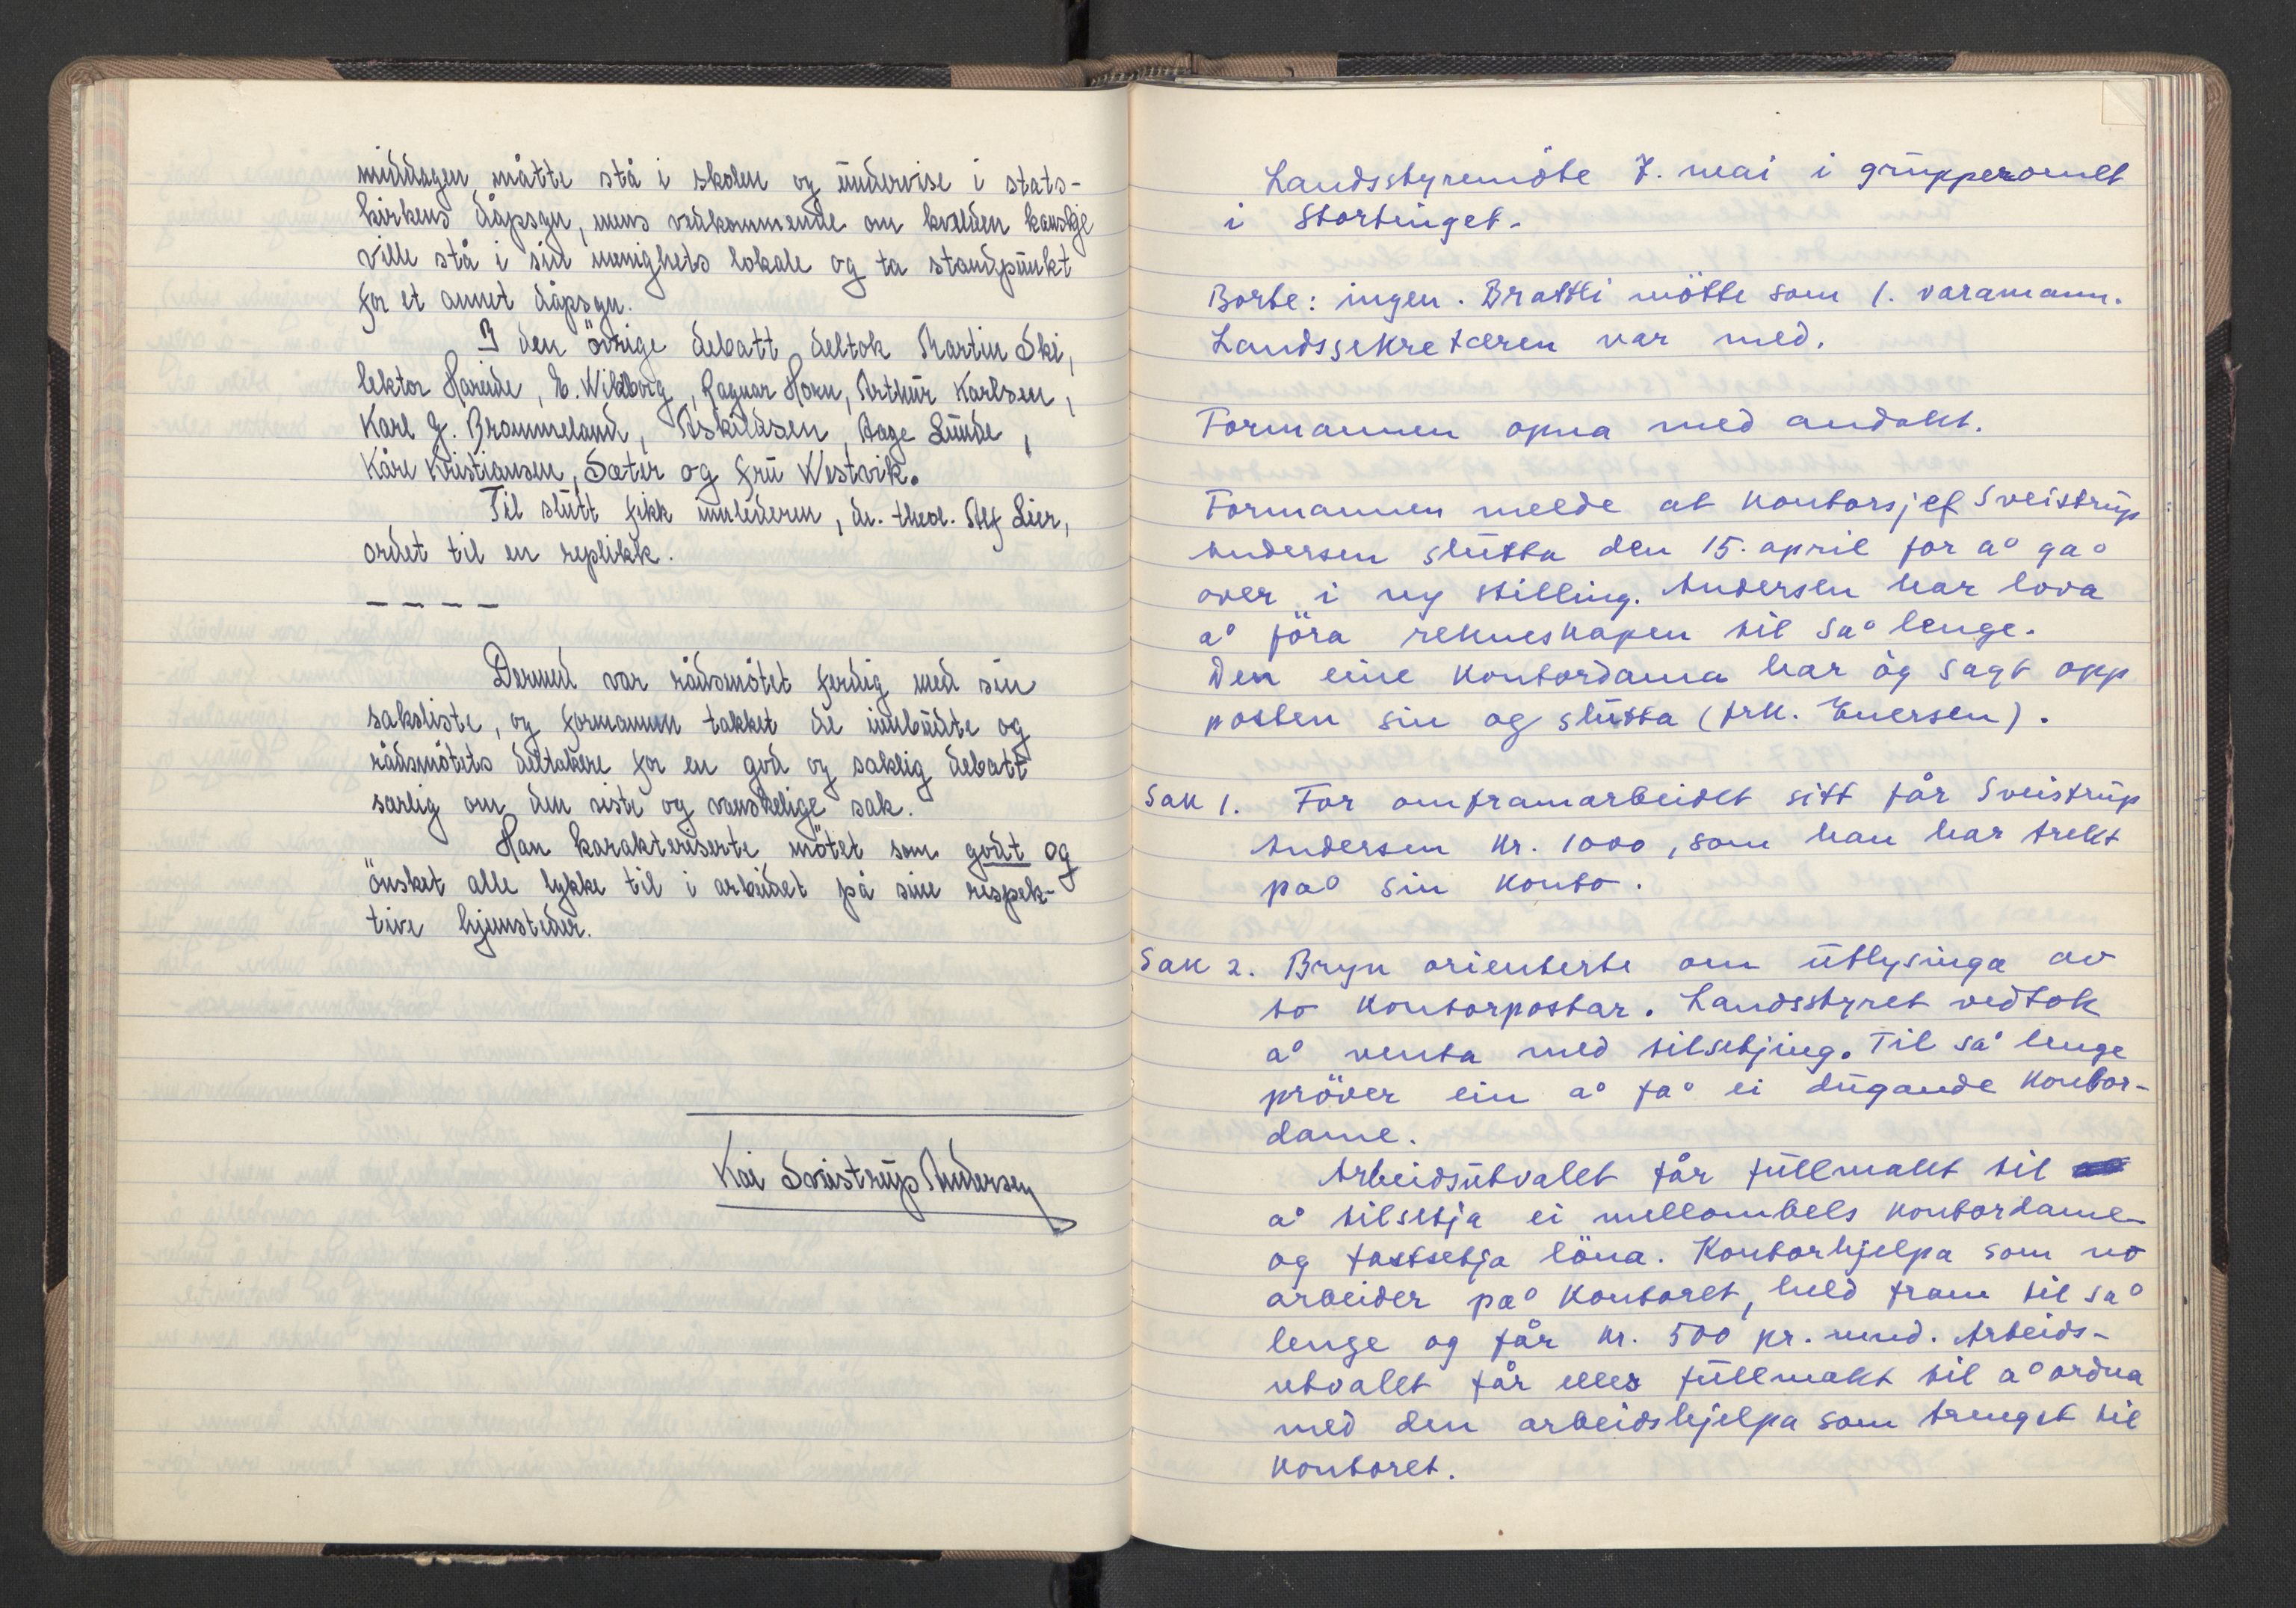 middagen måtte stå i skolen og undervise i stats-
kirkens dåpsyn, mens vedkommende om kvelden kanskje
ville stå i sin menighets lokale og ta standpunkt
for et annet dåpsyn.
I den övrige debatt deltok Martin Ski,
lektor Hareide, E. Wikborg, Ragnar Horn, Arthur Karlsen,
Karl J. Brommeland, Askildsen, Aage Lunde,
Kåre Kristiansen, Sæter og fru Westvik.
Til slutt fikk innlederen, dr. theol. Alf Lier,
ordet til en replikk.
- - - -
Dermed var rådsmötet ferdig med sin
saksliste, og formannen takket de innbudte og
rådsmötets deltakere for en god og saklig debatt
særlig om den siste og vanskelige sak.
Han karakteriserte mötet som godt og
önsket alle lykke til i arbeidet på sine respek-
tive hjemsteder.
Kai Sveistrup Andersen
Landsstyremöte 7. mai i grupperomet
i Stortinget.
Borte: ingen. Brattli mötte som 1. varamann.
Landssekretæren var med.
Formannen opna med andakt.
Formannen melde at kontorsjef Sveistrup
Andersen slutta den 15. april for å gå
over i ny stilling. Andersen har lova
å föra rekneskapen til så lenge.
Den eine kontordama har òg sagt opp
posten sin og slutta (frk. Enersen).
Sak 1. For omframarbeidet sitt får Sveistrup
Andersen kr. 1000, som han har trekt
på sin konto.
Sak 2. Bryn orienterte om utlysinga av
to kontorpostar. Landsstyret vedtok
å venta med tilsetjing. Til så lenge
pröver ein å få ei dugande kontor-
dame.
Arbeidsutvalet får fullmakt til
å tilsetja ei mellombels kontordame
og fastsetja löna. Kontorhjelpa som no
arbeider på kontoret, held fram til så
lenge og får kr. 500 pr. mnd. Arbeids-
utvalet får elles fullmakt til å ordna
med den arbeidshjelpa som trengst til
kontoret.